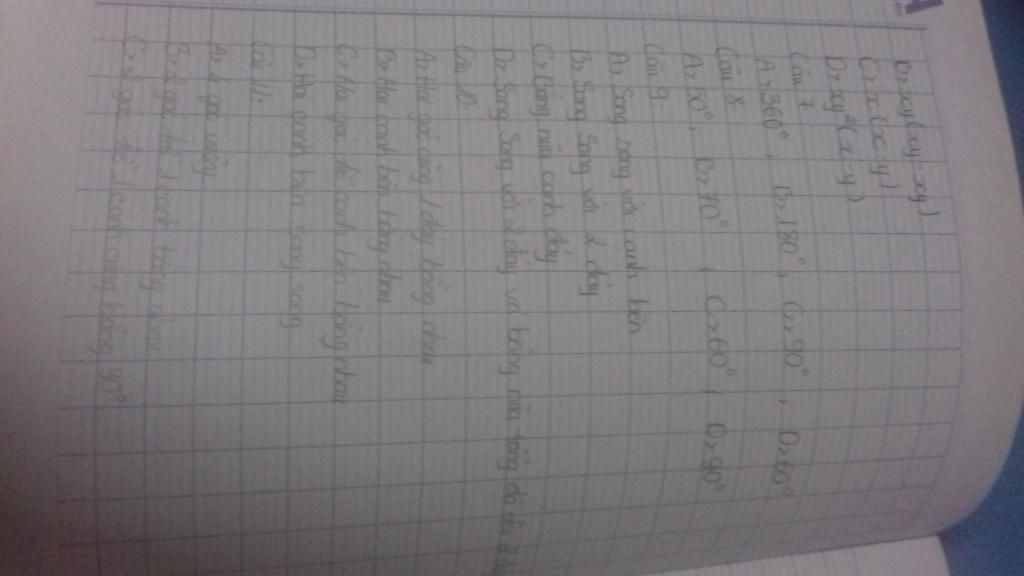 B, xy(xy-xy)
C, x(x-y)
D, xy²(x-y)
Câu 7
A, 360°, B, 180°, C, 90°, D, 60°
Câu 8
A, 50°, B, 70°, C, 60°, D, 90°
Câu 9
A, Song song với cạnh bên
B, Song song với 2 đáy
C, Bằng nửa cạnh đáy
D, Song song với 2 đáy và bằng nửa tổng độ dài 2
Câu
A, Hai góc cùng 1 đáy bằng nhau
B, Hai cạnh bên bằng nhau
C, Hai góc kề cạnh bên bằng nhau
D, Hai cạnh bên song song
Câu 11:
A, 2 góc vuông
B, 2 góc kề 1 cạnh bằng nhau
C, 2 góc kề 1 cạnh cùng bằng 90°